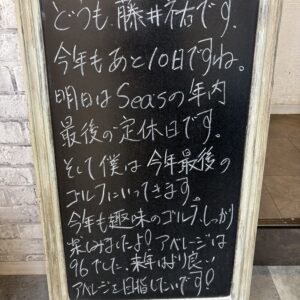 どうも、藤井祐です。
今年もあと10日ですね。
明日はSeasの年内
最後の定休日です。
そして僕は今年最後の
ゴルフにいってきます。
今年も趣味のゴルフしっかり
楽しみましたよ!アベレージは
96でした、来年はより良い
アベレージを目指したいです!